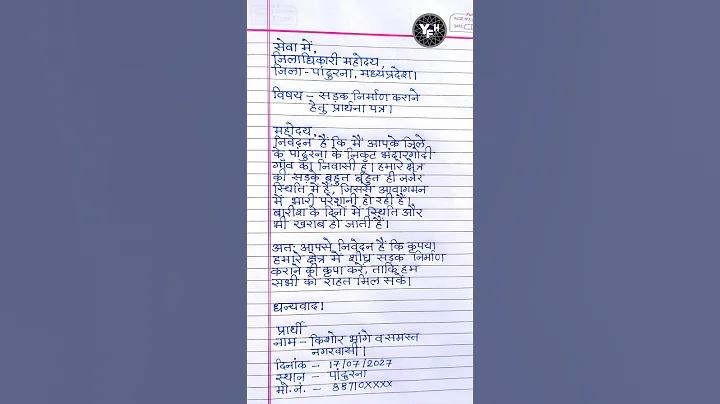 YFH
सेवा में,
जिलाधिकारी महोदय,
जिला - पांढुरना, मध्यप्रदेश।
विषय – सड़क निर्माण कराने
हेतु प्रार्थना पत्र।
महोदय,
निवेदन है कि मैं आपके जिले
के पांढुरना के निकट भंदारगोंदी
गाँव का निवासी हूँ। हमारे क्षेत्र
की सड़के बहुत बहुत ही जर्जर
स्थिति में है, जिससे आवागमन
में भारी परेशानी हो रही है।
बारीश के दिनों में स्थिति और
भी खराब हो जाती हैं।
अतः आपसे निवेदन हैं कि कृपया
हमारे क्षेत्र में शीघ्र सड़क निर्माण
कराने की कृपा करें, ताकि हम
सभी को राहत मिल सके।
धन्यवाद।
प्रार्थी
नाम – किशोर भांगे व समस्त
नगरवासी।
दिनांक – 17/07/2027
स्थान – पांढुरना
मो.नं. – 88710XXXX